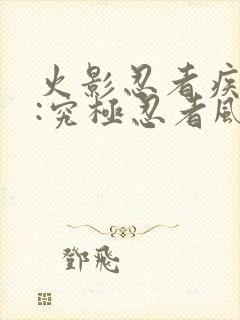 火影忍者疾
:究極忍者風
鄧飛